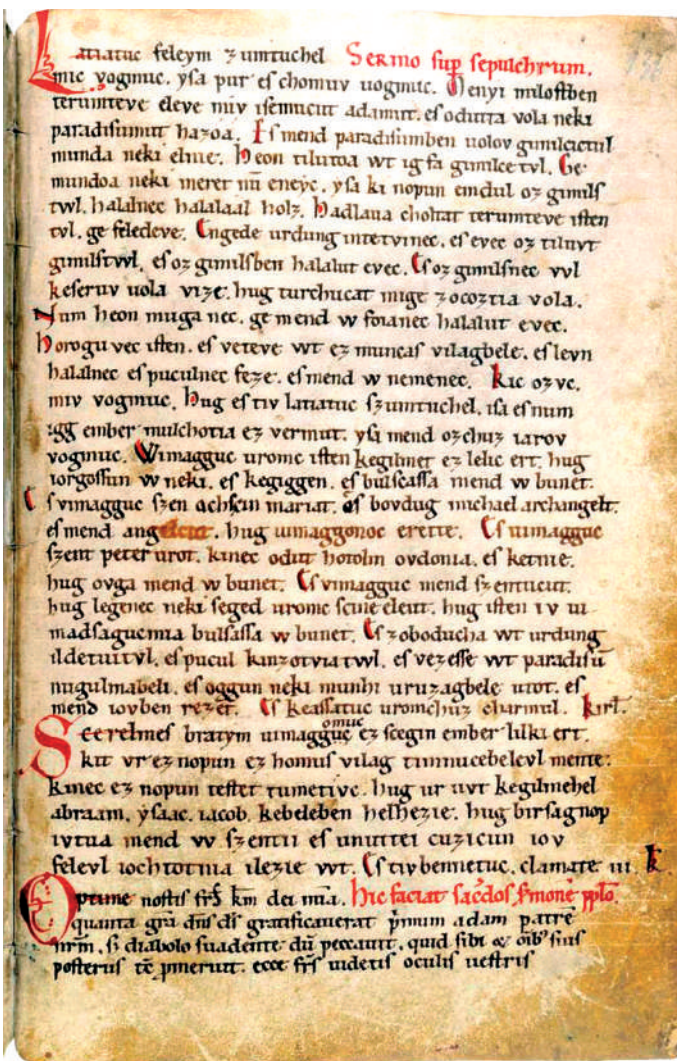 Latiatuc feleym zumtuchel Sermo sup sepulchrum.
mic vogmuc. ysa pur es chomuv uogmuc. Menyi milostben
terumteve eleve miv isemucut adamut. es odutta vola neki
paradisumut hazoa. Es mend paradisumben uolov gimilcictul
munda neki elnie. Heon tilutoa wt ig fa gimilce tvl. Ge
mundoa neki meret nū eneyc. ysa ki nopun emdul oz gimils
twl. halalnec halalaal holz. Hadlaua choltat terumteve isten
tvl. ge feledeve. Engede urdung intetvinec. es evec oz tiluvt
gimilstwl. es oz gimilsben halalut evec. Es oz gimilsnec vvl
keseruv uola vize. hug turchucat mige zocoztia vola.
Num heon muga nec. ge mend w foianec halalut evec.
Horogu vec isten. es veteve wt ez muncas vilagbele. es levn
halalnec es puculnec feze. es mend w nemenec. Kic ozvc.
miv vogmuc. Hug es tiv latiatuc szumtuchel. isa es num
igg ember mulchotia ez vermut. ysa mend ozchuz iarov
vogmuc. Wimagguc uromc isten kegilmet ez lelic ert. hug
iorgossun w neki. es kegiggen. es bulsassa mend w bunet.
Es vimagguc szen achscin mariat. es bovdug michael archangelt.
es mend angelcut. hug uimaggonoc erette. Es uimagguc
szent peter urot. kinec odut hotolm ovdonia. es ketnie.
hug ovga mend w bunet. Es vimagguc mend szentucut.
hug legenec neki seged uromc scine eleut. hug isten iv ui
madsagucmia bulsassa w bunet. Es zoboducha wt urdung
ildetuitvl. es pucul kinzotviatwl. es vezesse wt paradisū
nugulmabeli. es oggun neki munhi uruzagbele utot. es
mend iovben rezet. Es keassatuc uromchuz charmul. Kirl.
Scerelmes bratym uimagguc omuc ez scegin ember lilki ert.
kit vr ez nopun ez homus vilag timnucebelevl mente.
kinec ez nopun testet tumetivc. hug ur uvt kegilmehel
abraam. ysaac. iacob. kebeleben helhezie. hug birsagnop
ivtua mend w szentii es unuttei cuzicun iov
felevl iochtotnia ilezie wt. Es tivbennetuc. clamate iii. K
Optime nostis frs̄ km̄ dei mīa. Hic faciat sacdos smonē pplo.
quanta grā dn̄s ds̄ gratificauerat pimum adam patrē
nrm̄. si diabolo suadente dū peccauit. quid sibi & oib' suis
posteris pmeruit. ecce frs̄ uidetis oculis uestris